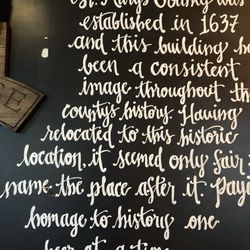 St. Mary's County was
established in 1637
and this building h
been a consistent
image throughout th
county's history. Having
relocated to this historic
location, it seemed only fair
name the place after it. Pay
homage to history one
beer at a time